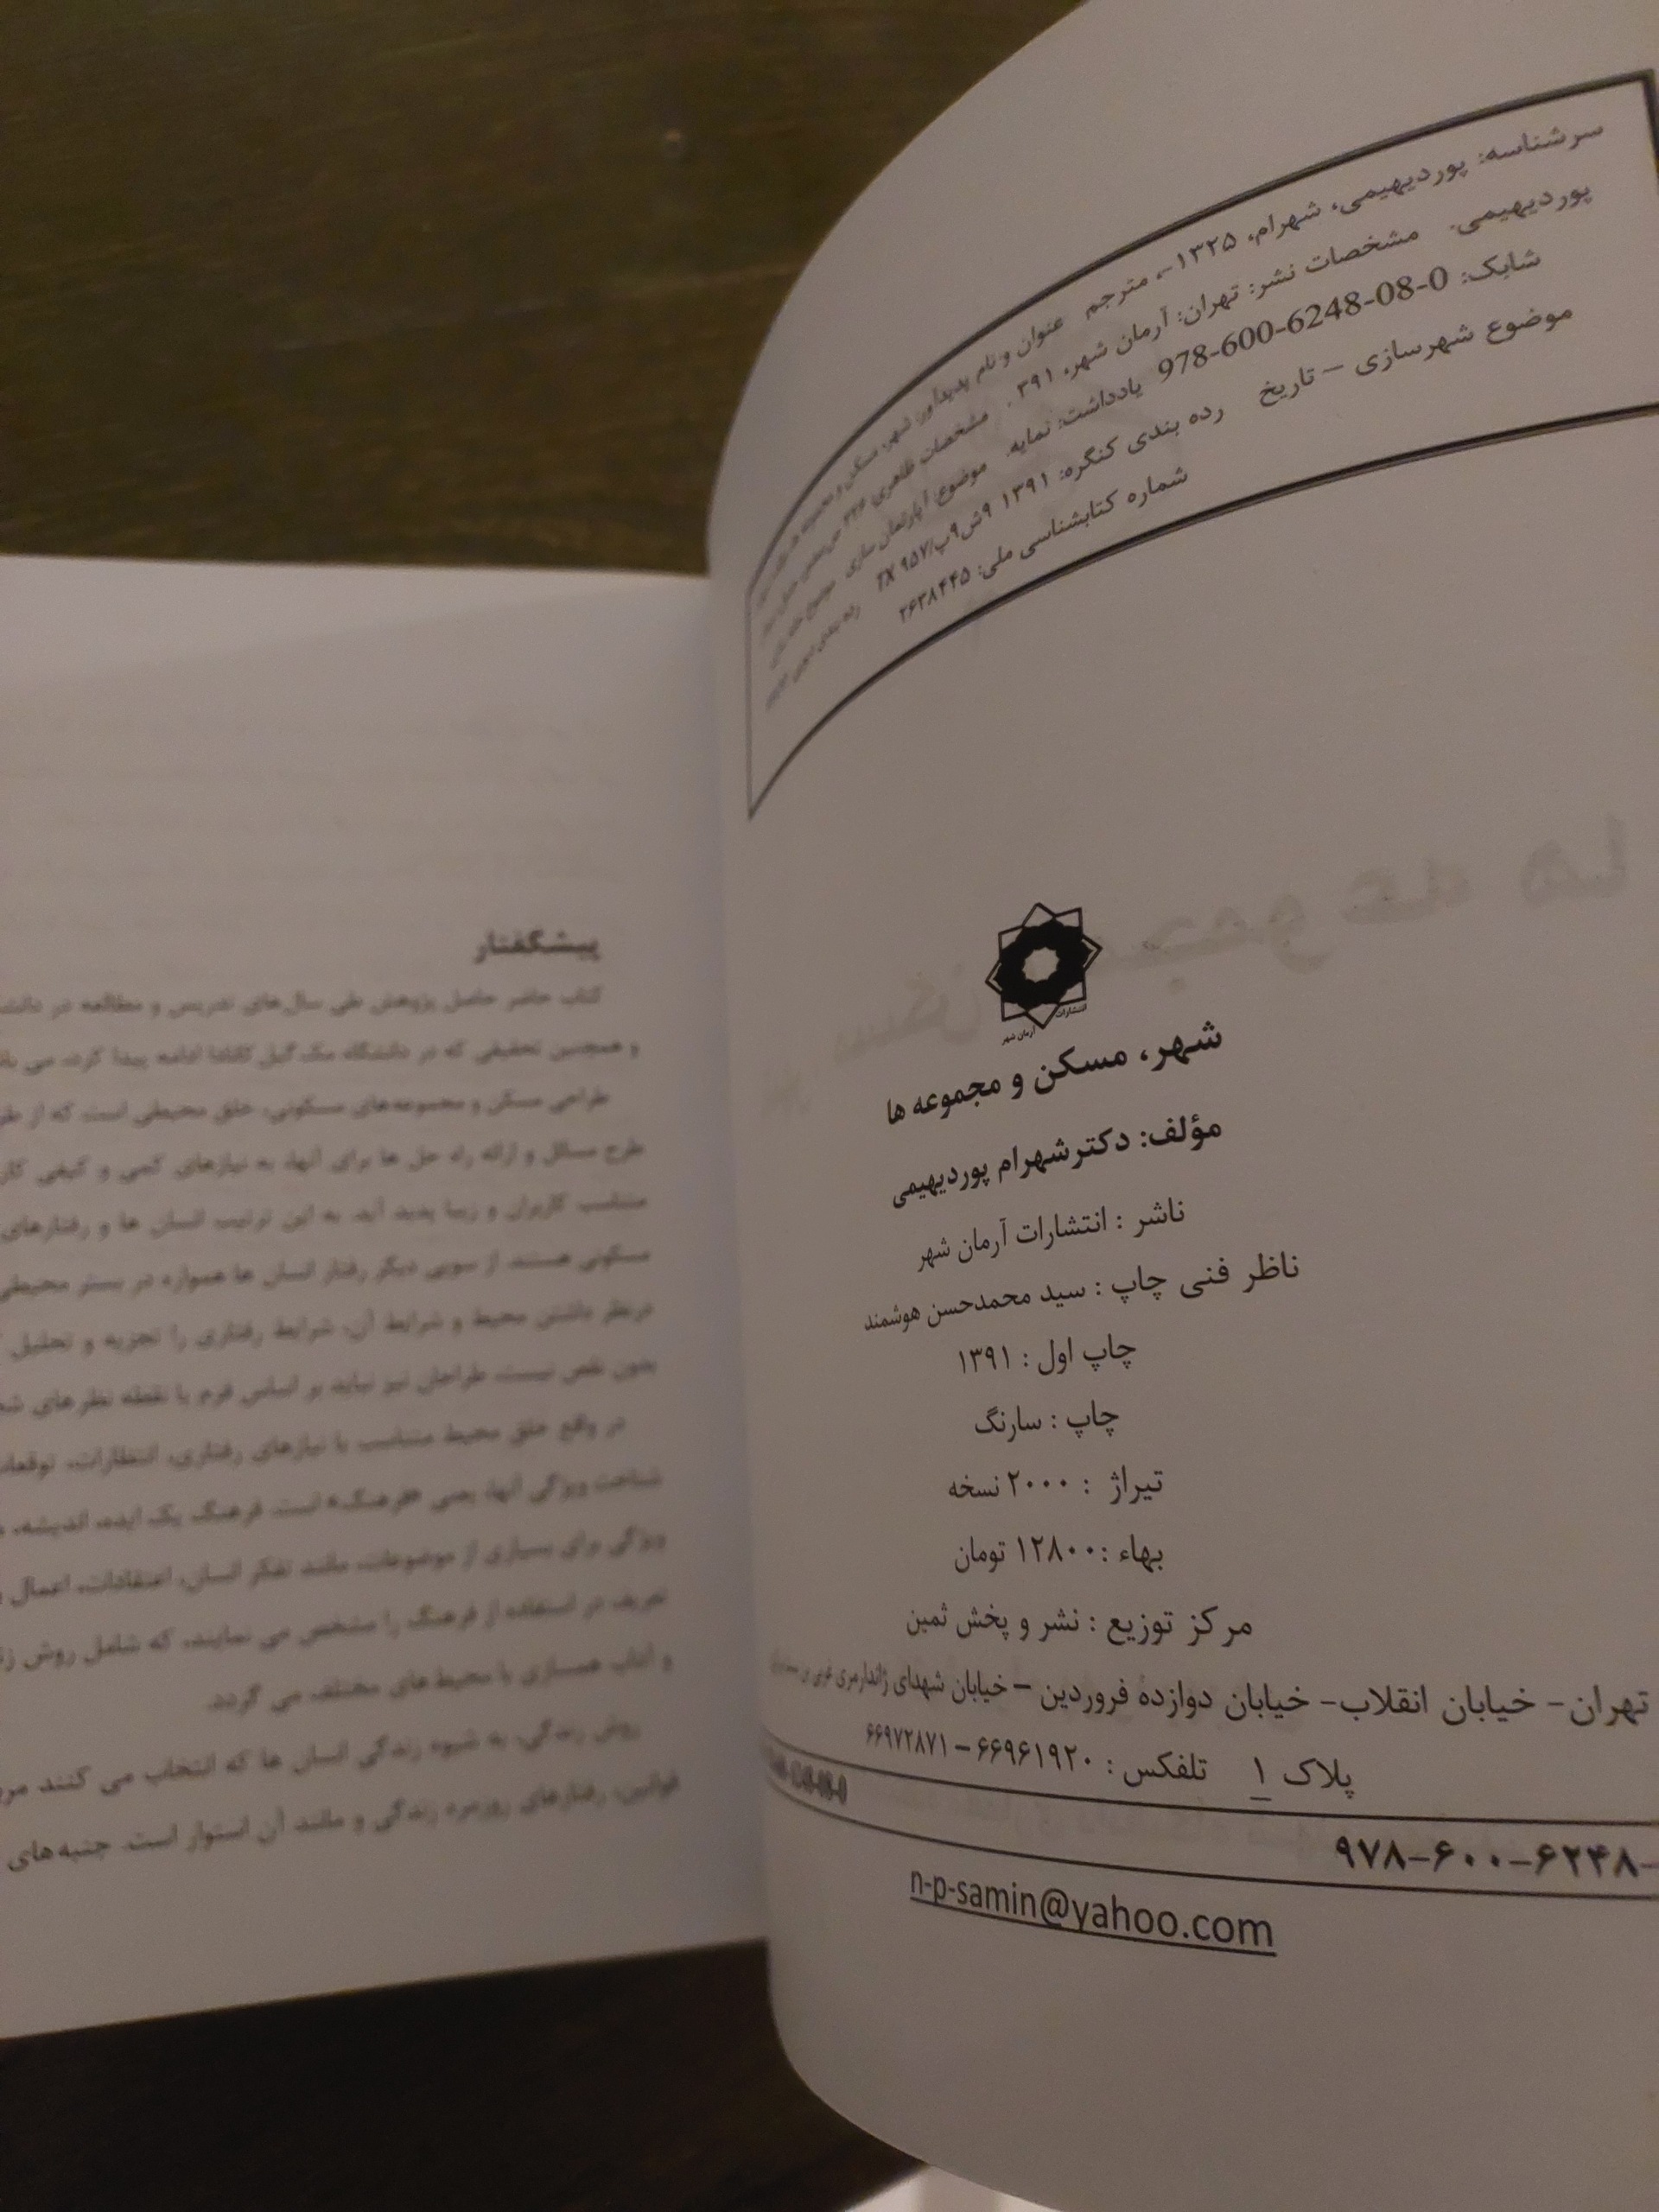 سرشناسه: پوردیهیمی، شهرام، ۱۳۲۵-، مترجم عنوان و نام پدیدآور: شهر، مسکن و مجموعه ها
پوردیهیمی. مشخصات نشر: تهران: آرمان شهر، ۳۹۱ . مشخصات ظاهری:
شابک: 978-600-6248-08-0 یادداشت: نمایه. موضوع: آپارتمان سازی
موضوع شهرسازی – تاریخ رده بندی کنگره: ۱۳۹۱ ۹ش۹پ/TX ۹۵۷ رده بندی دیویی
شماره کتابشناسی ملی: ۲۶۳۸۴۴۵
انتشارات آرمان شهر
شهر، مسکن و مجموعه ها
مؤلف: دکترشهرام پوردیهیمی
ناشر : انتشارات آرمان شهر
ناظر فنی چاپ : سید محمدحسن هوشمند
چاپ اول : ۱۳۹۱
چاپ : سارنگ
تیراژ : ۲۰۰۰ نسخه
بهاء :۱۲۸۰۰ تومان
مرکز توزیع : نشر و پخش ثمین
تهران- خیابان انقلاب- خیابان دوازده فروردین – خیابان شهدای ژاندارمری
پلاک ۱ تلفکس : ۶۶۹۶۱۹۲۰ – ۶۶۹۷۲۸۷۱
۹۷۸-۶۰۰-۶۲۴۸-
n-p-samin@yahoo.com
پیشگفتار
کتاب حاضر حاصل پژوهش طی سال‌های تدریس و مطالعه در
و همچنین تحقیقی که در دانشگاه مک گیل کانادا ادامه پیدا کرد، می
طراحی مسکن و مجموعه‌های مسکونی، خلق محیطی است که از
طرح مسائل و ارائه راه حل ها برای آنها، به نیازهای کمی و کیفی
متناسب کاربران و زیبا پدید آید. به این ترتیب انسان ها و رفتارهای
مسکونی هستند. از سویی دیگر رفتار انسان ها همواره در بستر محیطی
درنظر داشتن محیط و شرایط آن، شرایط رفتاری را تجزیه و تحلیل
بدون نقص نیست. طراحان نیز نباید بر اساس فرم یا نقطه نظرهای
در واقع خلق محیط متناسب با نیازهای رفتاری، انتظارات، توقعات
شناخت ویژگی آنها، یعنی «فرهنگ» است. فرهنگ یک ایده، اندیشه،
ویژگی برای بسیاری از موضوعات، مانند تفکر انسان، اعتقادات، اعمال
تعریف در استفاده از فرهنگ را مشخص می نمایند، که شامل روش
و آداب همسازی با محیط‌های مختلف می گردد.
روش زندگی، به شیوه زندگی انسان ها که انتخاب می کنند
قوانین، رفتارهای روزمره زندگی و مانند آن استوار است. جنبه‌های